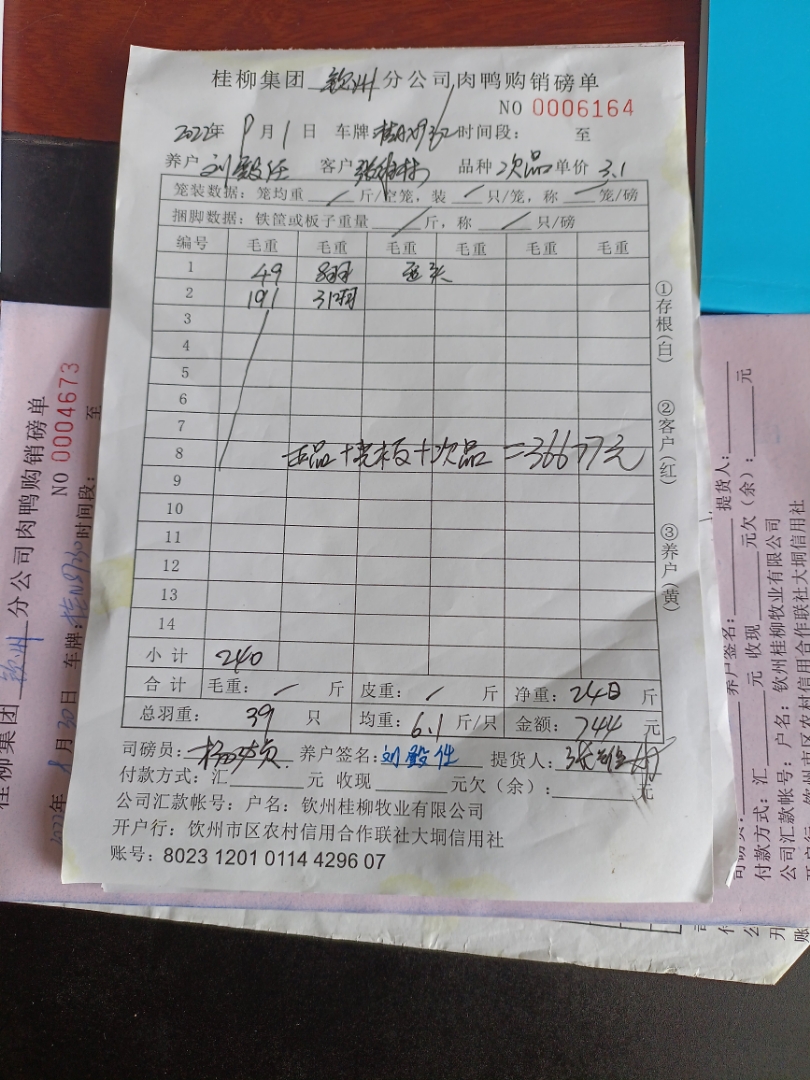 桂柳集团 钦州 分公司肉鸭购销磅单
NO 0006164
2022年 9月1日 车牌: 时间段: 至
养户 刘毅任 客户 品种 次品 单价 3.1
笼装数据: 笼均重 / 斤/空笼, 装 / 只/笼, 称 / 笼/磅
捆脚数据: 铁筐或板子重量 / 斤, 称 / 只/磅
编号 毛重 毛重 毛重 毛重 毛重 毛重
1 49 8羽
2 191 31羽
3
4
5
6
7
8 正品+壳板+次品=36677元
9
10
11
12
13
14
小计 240
合计 毛重: / 斤 皮重: / 斤 净重: 240 斤
总羽重: 39 只 均重: 6.1 斤/只 金额: 744 元
司磅员: 养户签名: 刘毅任 提货人:
付款方式: 汇 元 收现 元欠(余): 元
公司汇款帐号: 户名: 钦州桂柳牧业有限公司
开户行: 钦州市区农村信用合作联社大垌信用社
账号: 8023 1201 0114 4296 07
①存根(白) ②客户(红) ③养户(黄)
桂柳集团 钦州 分公司肉鸭购销磅单
NO 0004673
2022年 8月30日 车牌: 时间段: 至
养户签名: 提货人:
付款方式: 汇 元 收现 元欠(余): 元
公司汇款帐号: 户名: 钦州桂柳牧业有限公司
农村信用合作联社大垌信用社